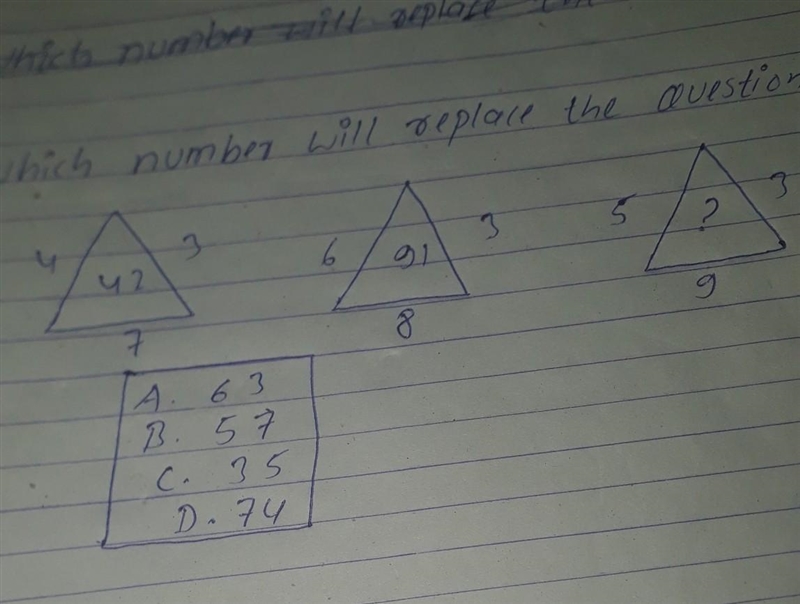 which number will replace the
which number will replace the Question
4 3 6 3 5 3
42 91 ?
7 8 9
A. 63
B. 57
C. 35
D. 74